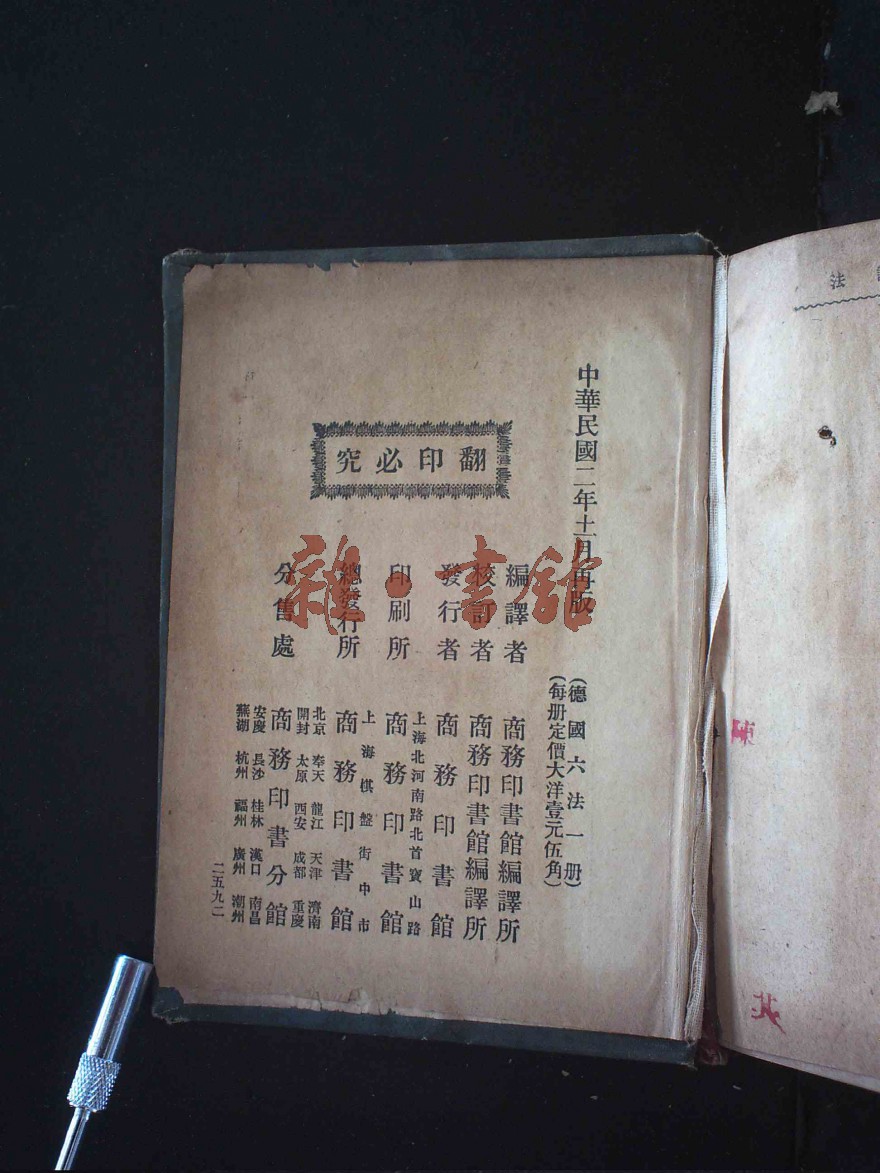 中華民國二年十一月再版
(德國六法一册)
(每册定價大洋壹元伍角)
編譯者 商務印書館編譯所
校訂者 商務印書館編譯所
發行者 商務印書館
上海北河南路北首寶山路
印刷所 商務印書館
上海棋盤街中市
總發行所 商務印書館
北京 奉天 龍江 天津 濟南
開封 太原 西安 成都 重慶
分售處 商務印書分館
安慶 長沙 桂林 漢口 南昌
蕪湖 杭州 福州 廣州 潮州
二五九二
翻印必究
雜·書館
法
陳